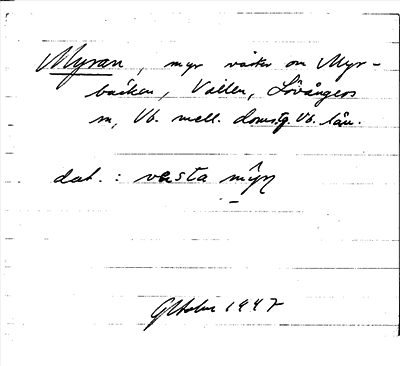 Myran, myr väster om Myr-
bäcken, Vallen, Lövångers
sn, Vb. mell. domsg. Vb. län.
dat. : västa myṛn
1947